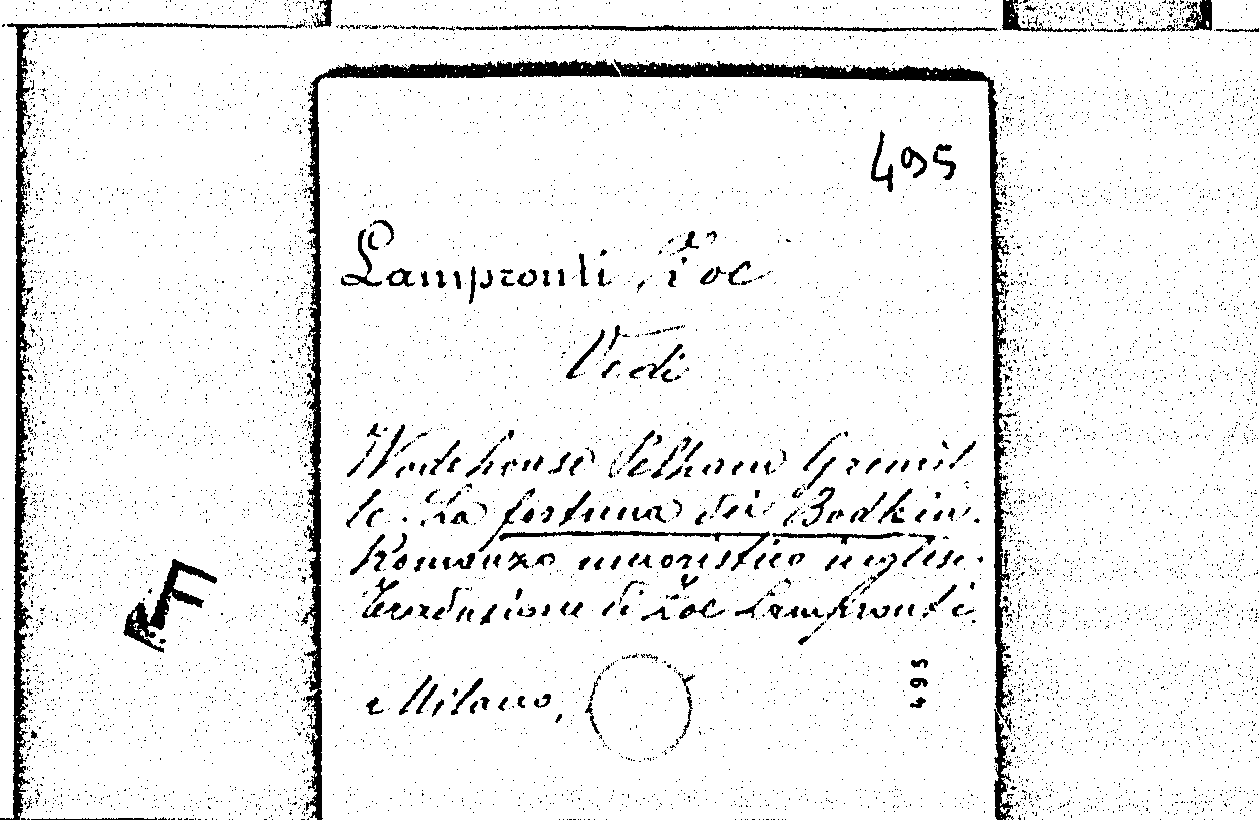 495
Lampronti Zoe
Vedi
Wodehouse Pelham Grenvil
le. La fortuna dei Bodkin.
Romanzo umoristico inglese.
Traduzione di Zoe Lampronti.
Milano,
495